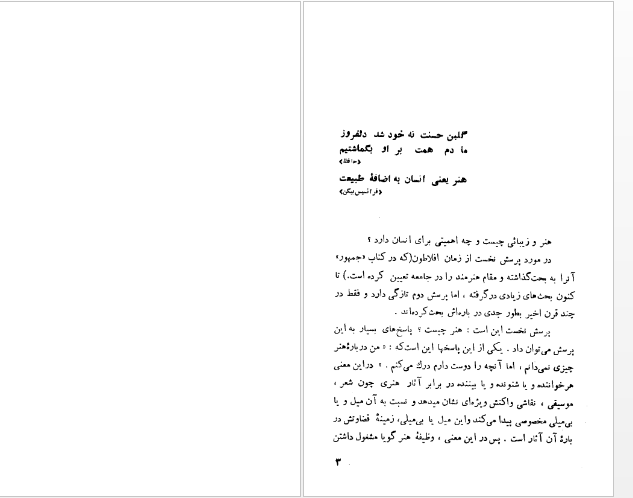 گلبن حسنت نه خود شد دلفروز
ما دم همت بر او بگماشتیم
«حافظ»
هنر یعنی انسان به اضافهٔ طبیعت
«فرانسیس بیکن»
هنر و زیبائی چیست و چه اهمیتی برای انسان دارد ؟
در مورد پرسش نخست از زمان افلاطون(که در کتاب «جمهور»
آنرا به بحث‌گذاشته و مقام هنرمند را در جامعه تعیین کرده است.) تا
کنون بحث‌های زیادی درگرفته ، اما پرسش دوم تازگی دارد و فقط در
چند قرن اخیر بطور جدی در باره‌اش بحث‌کرده‌اند .
پرسش نخست این است : هنر چیست ؟ پاسخ‌های بسیار به این
پرسش می‌توان داد . یکی از این پاسخها این است‌که : « من دربارهٔ‌هنر
چیزی نمی‌دانم ، اما آنچه را دوست دارم درك می‌کنم . » دراین معنی
هرخواننده و یا شنونده و یا بیننده در برابر آثار هنری چون شعر ،
موسیقی ، نقاشی واکنش ویژه‌ای نشان میدهد و نسبت به آن میل و یا
بی‌میلی مخصوصی پیدا می‌کند واین میل یا بی‌میلی، زمینهٔ قضاوتش در
بارهٔ آن آثار است . پس در این معنی ، وظیفهٔ هنر گویا مشغول داشتن
۳